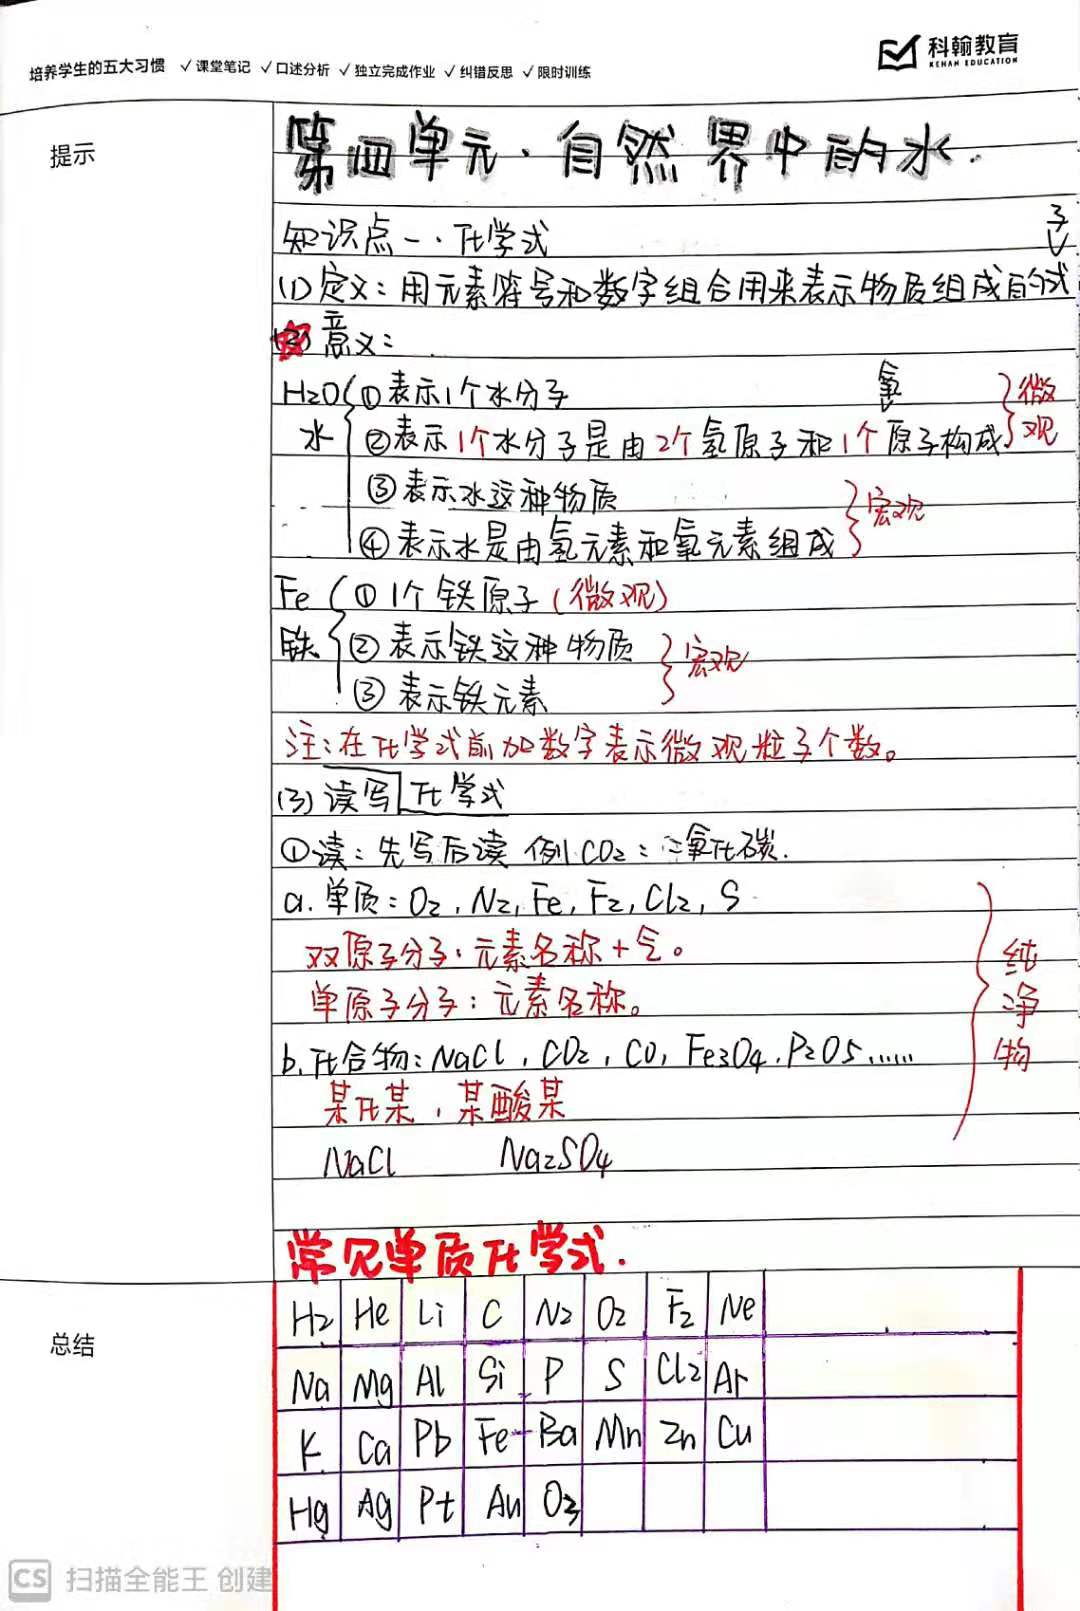 培养学生的五大习惯 ✓课堂笔记 ✓口述分析 ✓独立完成作业 ✓纠错反思 ✓限时训练
科翰教育
KEHAN EDUCATION
提示
第四单元·自然界中的水.
知识点一·化学式
子
(1)定义:用元素符号和数字组合用来表示物质组成的式
(2)意义:
H2O ①表示1个水分子
氧
微观
水 ②表示1个水分子是由2个氢原子和1个原子构成
③表示水这种物质
宏观
④表示水是由氢元素和氧元素组成
Fe ①1个铁原子(微观)
铁 ②表示铁这种物质
宏观
③表示铁元素
注:在化学式前加数字表示微观粒子个数。
(3)读写化学式
①读:先写后读 例CO2:二氧化碳.
a.单质:O2,N2,Fe,F2,Cl2,S
双原子分子·元素名称+气。
单原子分子:元素名称。
纯净物
b.化合物:NaCl,CO2,CO,Fe3O4,P2O5……
某化某,某酸某
NaCl Na2SO4
常见单质化学式.
总结
H2 He Li C N2 O2 F2 Ne
Na Mg Al Si P S Cl2 Ar
K Ca Pb Fe Ba Mn Zn Cu
Hg Ag Pt Au O3
CS 扫描全能王 创建